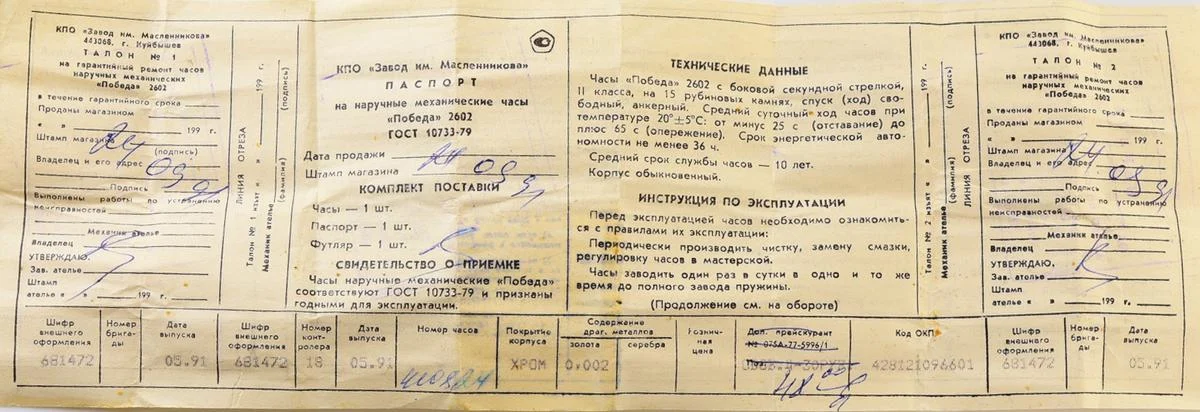 КПО «Завод им. Масленникова»
443068, г. Куйбышев
ТАЛОН № 1
на гарантийный ремонт часов
наручных механических
«Победа» 2602
в течение гарантийного срока
Проданы магазином
« » 199 г.
Штамп магазина
(подпись)
Владелец и его адрес
Подпись
Выполнены работы по устранению
неисправностей
Механик ателье
Владелец
УТВЕРЖДАЮ.
Зав. ателье
Штамп
ателье « » 199 г.
ЛИНИЯ ОТРЕЗА
Талон № 1 изъят « » 199 г.
Механик ателье
(фамилия) (подпись)
КПО «Завод им. Масленникова»
ПАСПОРТ
на наручные механические часы
«Победа» 2602
ГОСТ 10733-79
Дата продажи
Штамп магазина
09
КОМПЛЕКТ ПОСТАВКИ
Часы — 1 шт.
Паспорт — 1 шт.
Футляр — 1 шт.
СВИДЕТЕЛЬСТВО О ПРИЕМКЕ
Часы наручные механические «Победа»
соответствуют ГОСТ 10733-79 и признаны
годными для эксплуатации.
ТЕХНИЧЕСКИЕ ДАННЫЕ
Часы «Победа» 2602 с боковой секундной стрелкой,
II класса, на 15 рубиновых камнях, спуск (ход) сво-
бодный, анкерный. Средний суточный ход часов при
температуре 20°±5°С: от минус 25 с (отставание) до
плюс 65 с (опережение). Срок энергетической авто-
номности не менее 36 ч.
Средний срок службы часов — 10 лет.
Корпус обыкновенный.
ИНСТРУКЦИЯ ПО ЭКСПЛУАТАЦИИ
Перед эксплуатацией часов необходимо ознакомить-
ся с правилами их эксплуатации:
Периодически производить чистку, замену смазки,
регулировку часов в мастерской.
Часы заводить один раз в сутки в одно и то же
время до полного завода пружины.
(Продолжение см. на обороте)
Талон № 2 изъят « » 199 г.
Механик ателье
(фамилия) (подпись)
ЛИНИЯ ОТРЕЗА
КПО «Завод им. Масленникова»
443068, г. Куйбышев
ТАЛОН № 2
на гарантийный ремонт часов
наручных механических
«Победа» 2602
в течение гарантийного срока
Проданы магазином
« » 199 г.
Штамп магазина
(подпись)
Владелец и его адрес
Подпись
Выполнены работы по устранению
неисправностей
Механик ателье
Владелец
УТВЕРЖДАЮ.
Зав. ателье
Штамп
ателье « » 199 г.
Шифр внешнего оформления 681472
Номер брига-ды
Дата выпуска 05.91
Шифр внешнего оформления 681472
Номер конт-ролера 18
Дата выпуска 05.91
Номер часов
Покрытие корпуса ХРОМ
Содержание драг. металлов
золота 0,002
серебра
Рознич-ная цена
Доп. прейскурант
№ 075А-77-5996/1
Код ОКП 428121096601
Шифр внешнего оформления 681472
Номер брига-ды
Дата выпуска 05.91